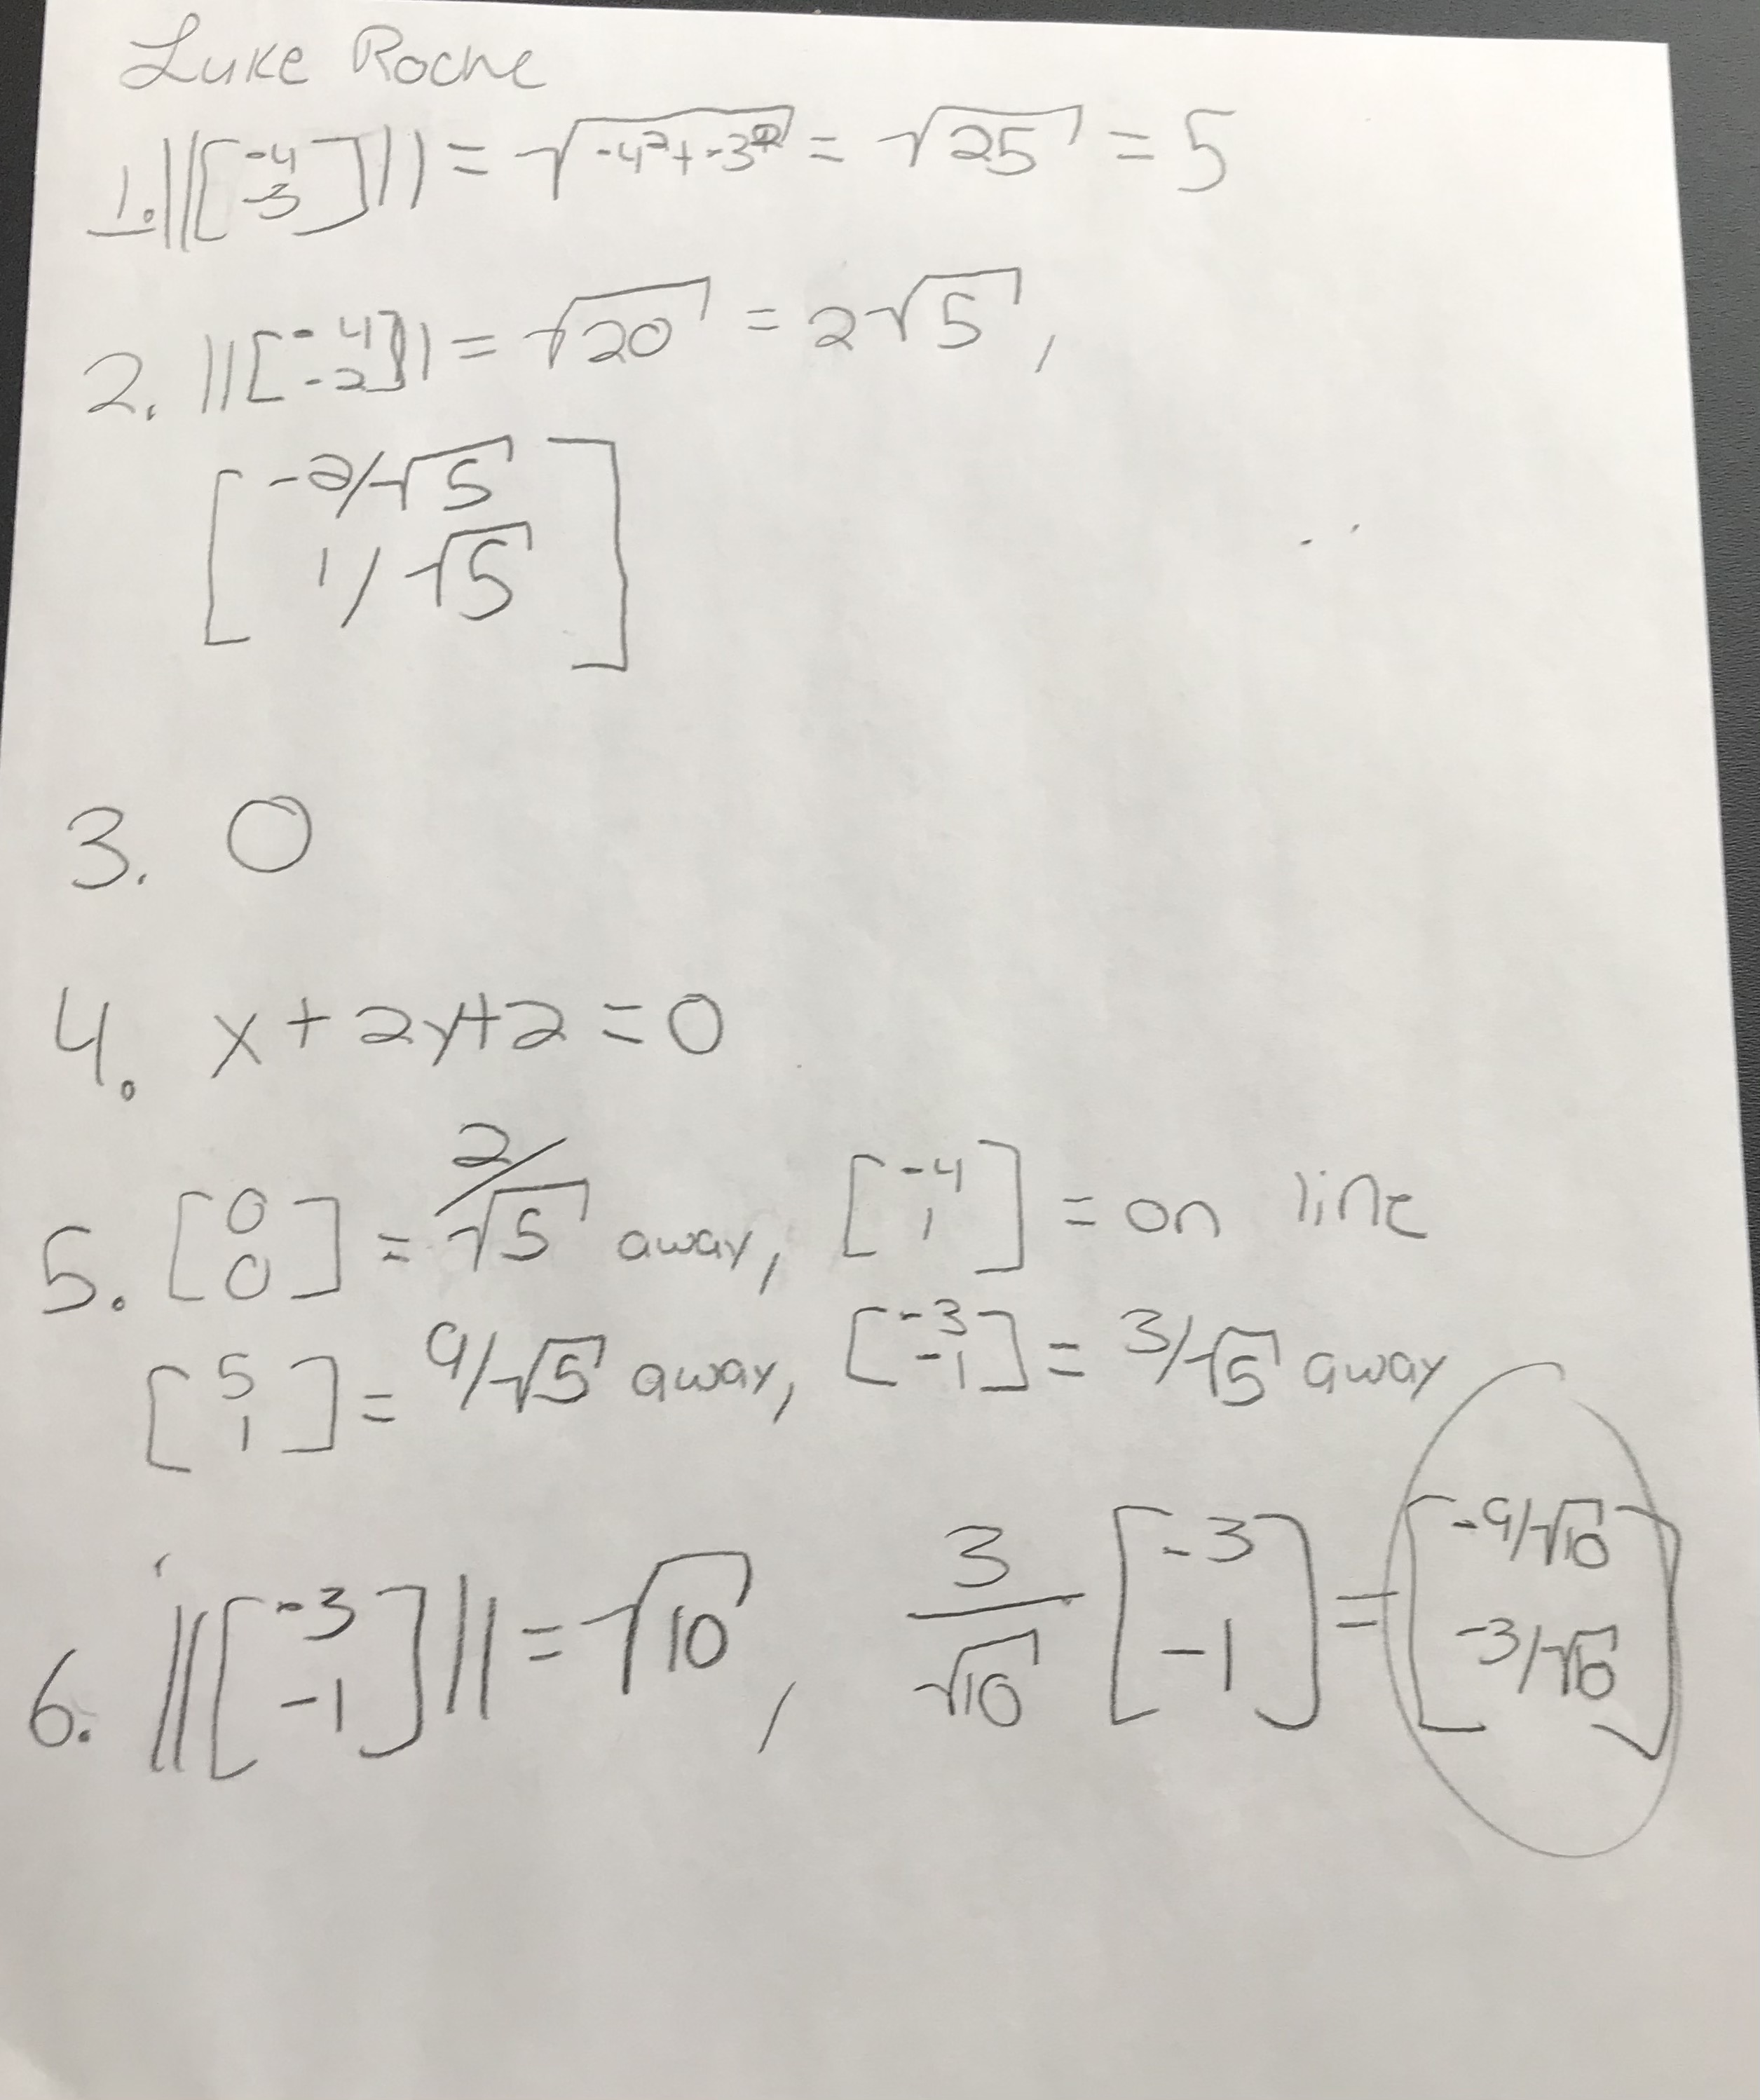 Luke Roche
1. ||[-4 -3]|| = √(-4²+-3²) = √25 = 5
2. ||[-4 -2]|| = √20 = 2√5,
[-2/√5
1/√5]
3. 0
4. x+2y+2=0
5. [0 0] = 2/√5 away, [-4 1] = on line
[5 1] = 9/√5 away, [-3 -1] = 3/√5 away
6. ||[-3 -1]|| = √10, 3/√10 [-3 -1] = [-9/√10 -3/√10]